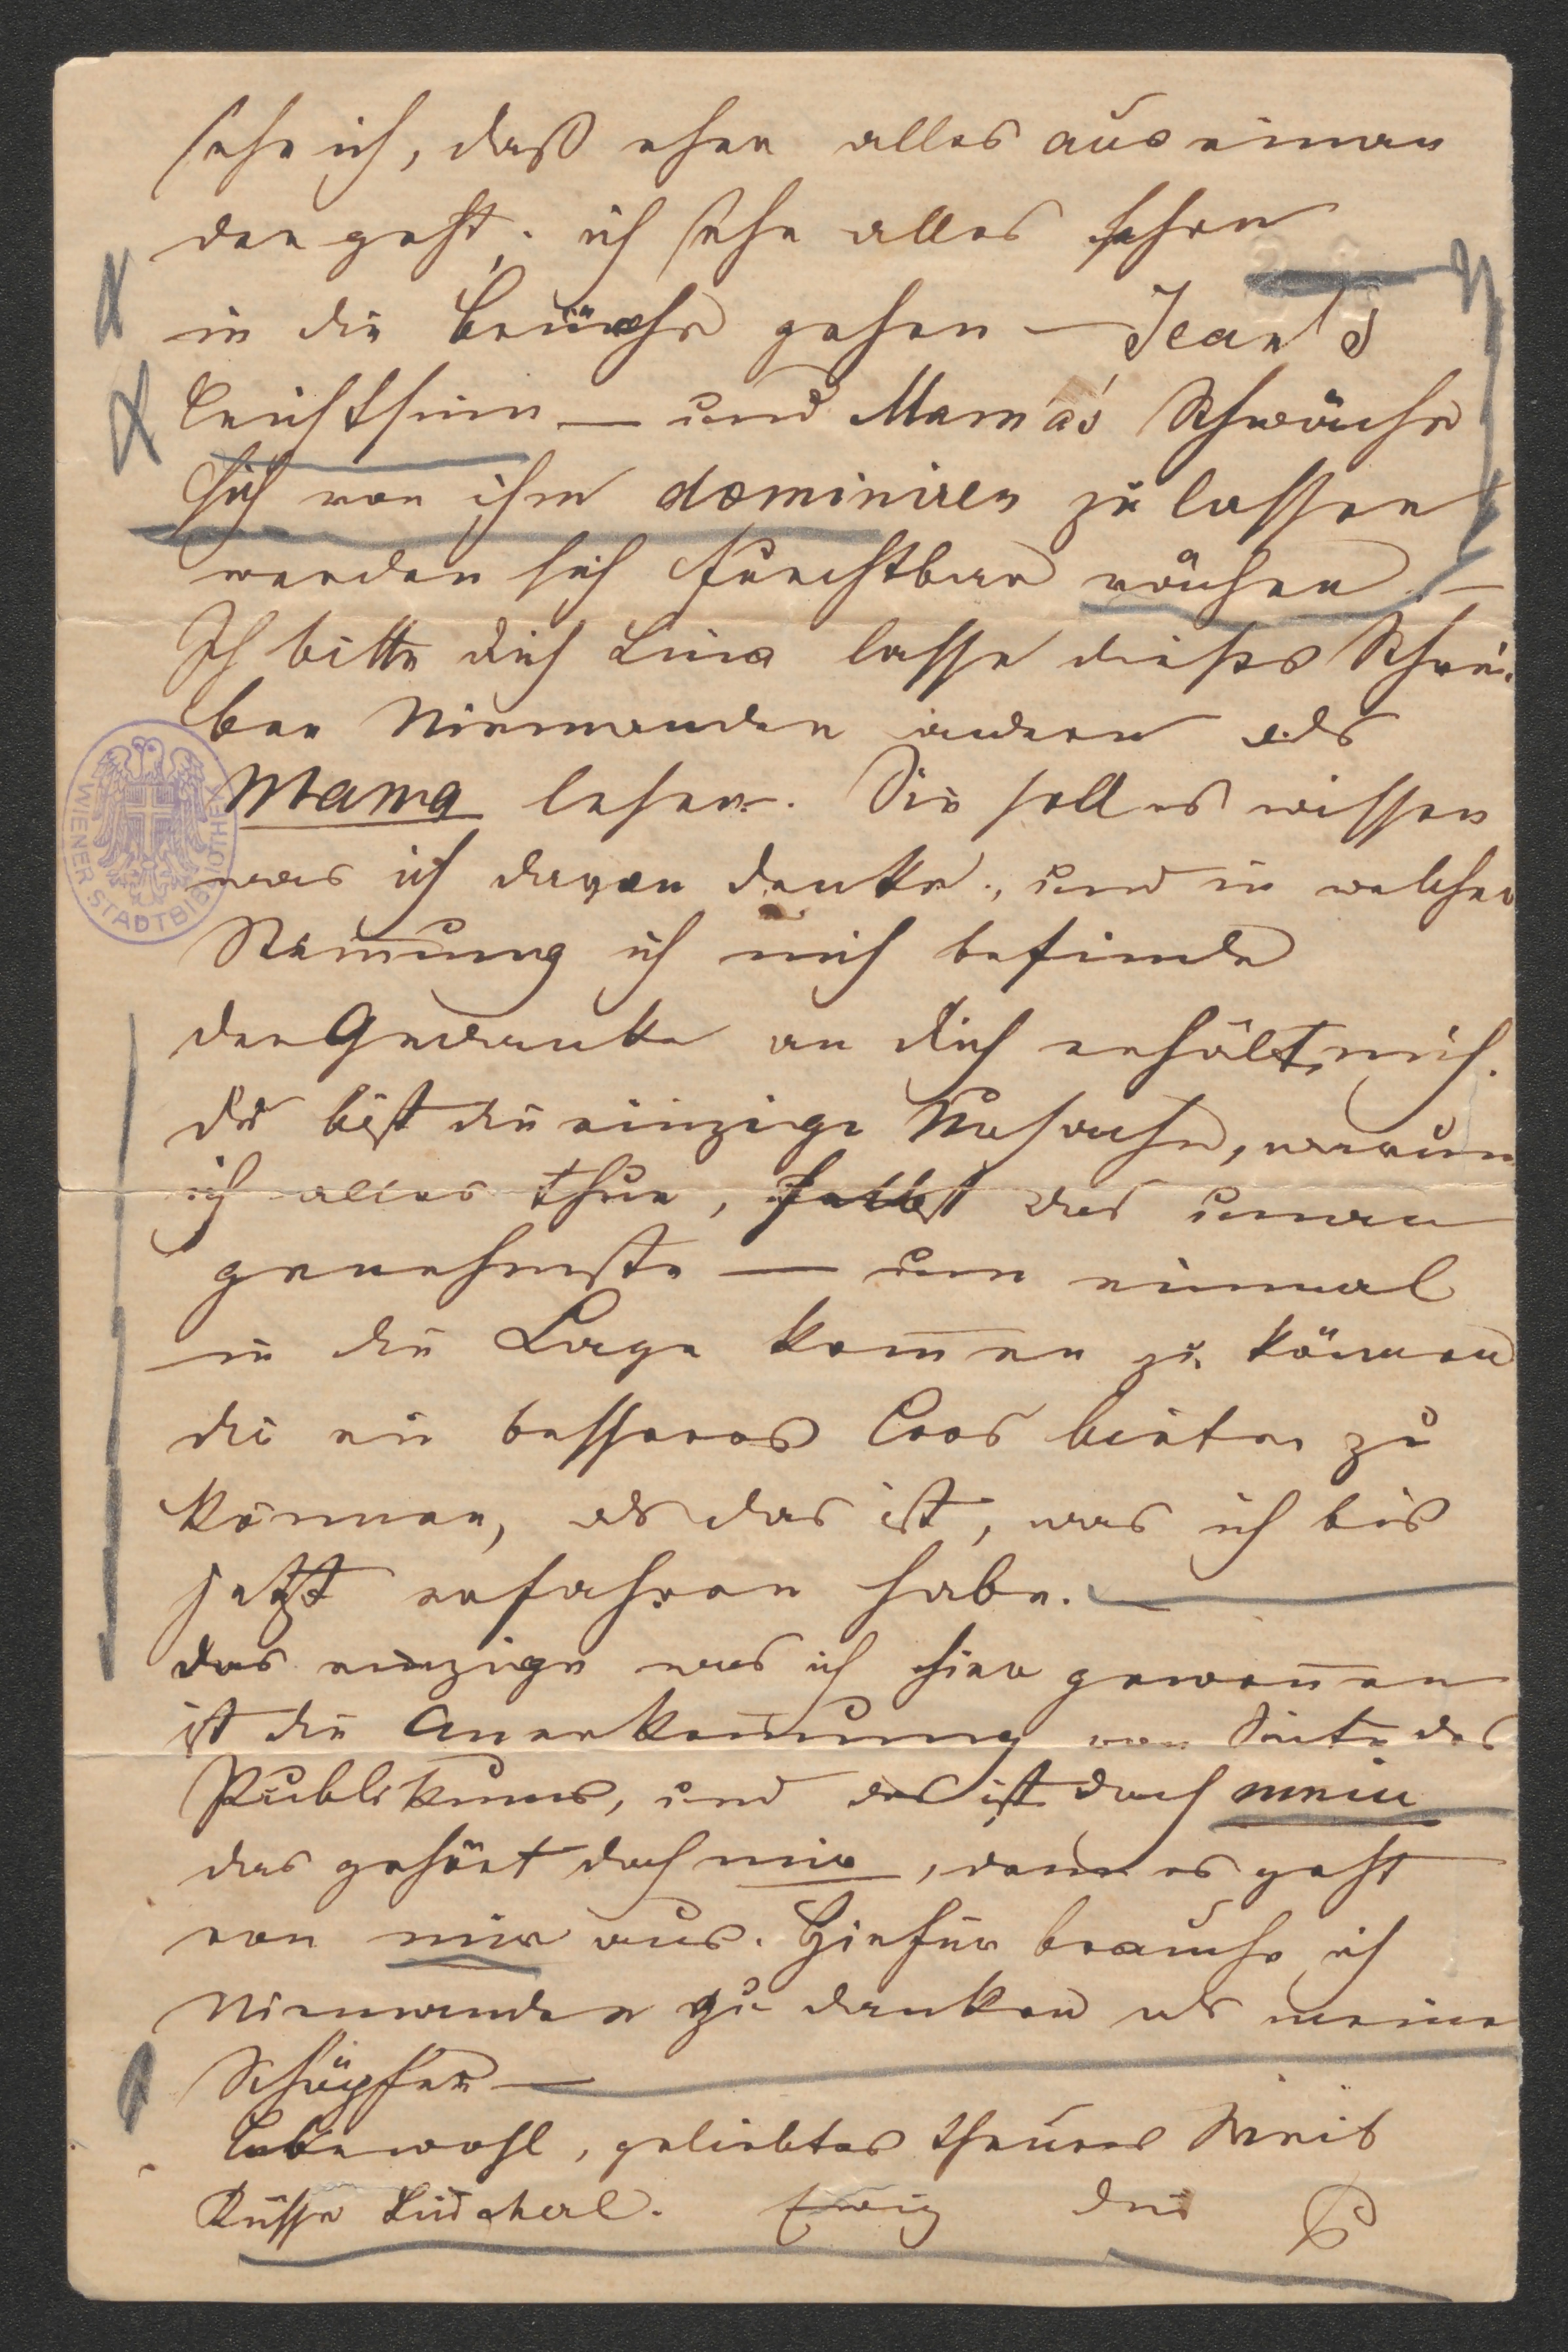 sehe ich, daß eher alles auseinan
der geht. ich sehe alles schon
in die Brüche gehen — Jean's
Leichtsinn — und Mama's Schwäche
sich von ihm dominiren zu lassen
werden sich furchtbar rächen. —
Ich bitte dich Lina lasse dießes Schrei-
ben Niemanden andern als
Mama lesen. Sie soll es wissen
was ich davon denke, und in welcher
Stimmung ich mich befinde
der Gedanke an dich erhält mich.
du bist die einzige Ursache, warum
ich alles thue, selbst das unan
genehmste — um einmal
in die Lage kommen zu können
dir ein besseres Loos bieten zu
können, als das ist, was ich bis
jetzt erfahren habe. —
das einzige was ich hier gewonnen
ist die Anerkennung von Seite des
Publikums, und das ist doch mein
das gehört doch mir, denn es geht
von mir aus. Hiefür brauche ich
Niemanden zu danken als meinem
Schöpfer —
Lebewohl, geliebtes theures Weib
Küsse Ewig dein
WIENER STADTBIBLIOTHEK